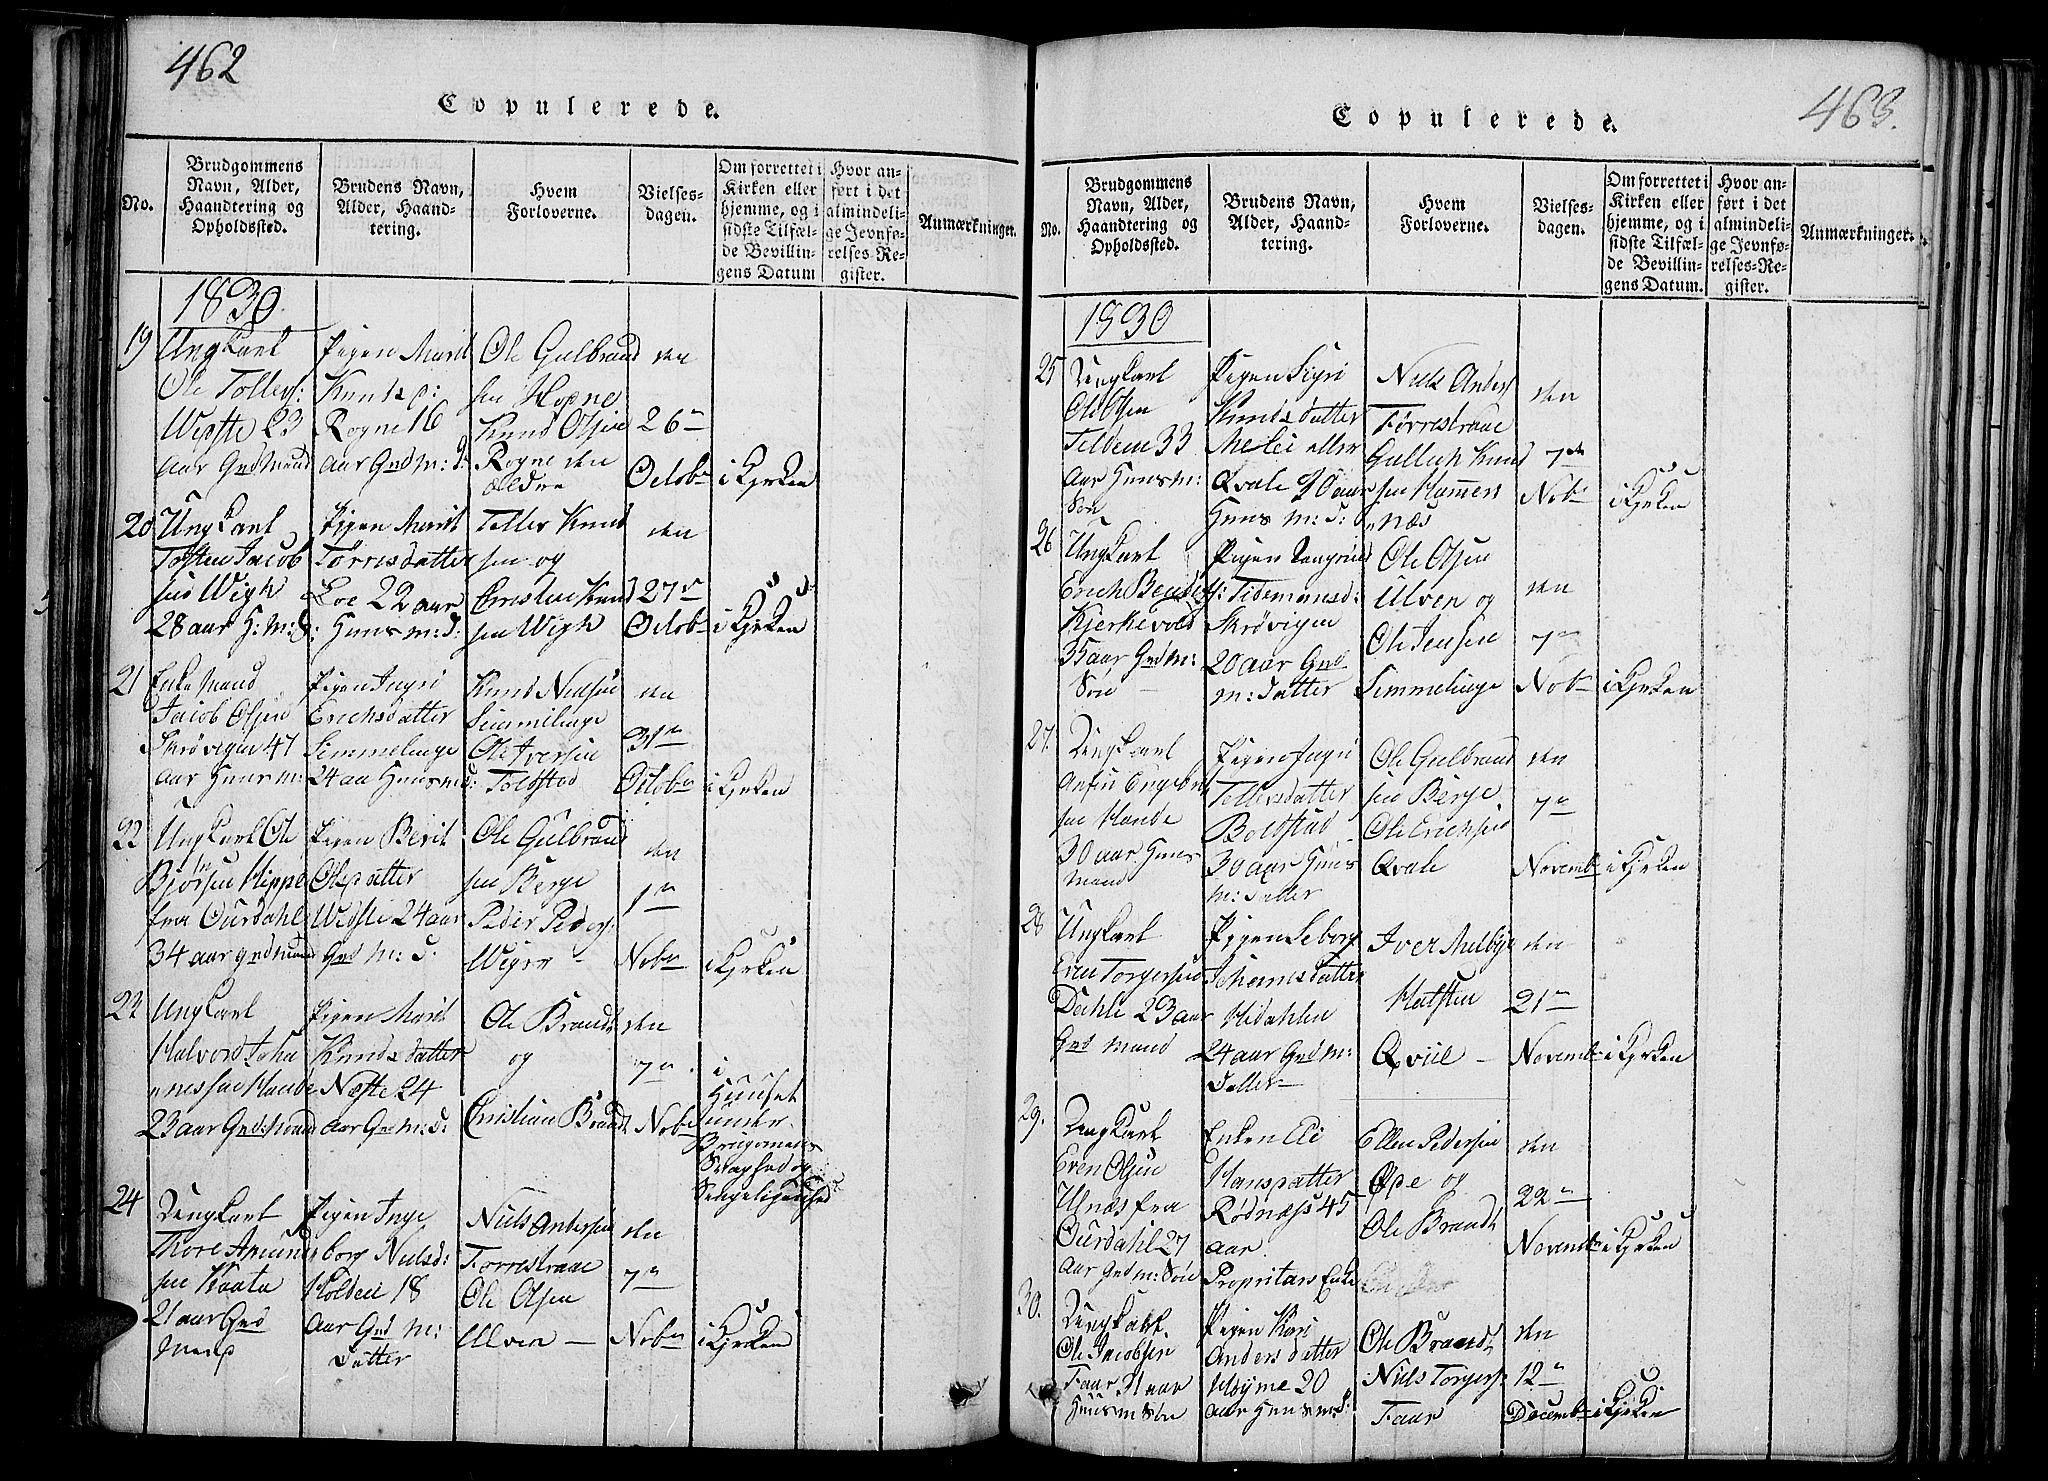 462
Copulerede.
No.
Brudgommens
Navn, Alder,
Haandtering og
Opholdssted.
Brudens Navn,
Alder, Haand-
tering.
Hvem
Forloverne.
Vielses-
dagen.
Om forrettet i
Kirken eller
hjemme, og i
sidste Tilfæl-
de Bevillin-
gens Datum
Hvor an-
ført i det
almindeli-
ge Jevnfø-
relses-Re-
gister.
Anmærkninger.
1830.
19
Ungkarl
Ole Tollefs:
Wefste 23
aar Gndmand
Pigen Marit
Knutsd:
Rogne 16
aar Gndm: D:
Ole Gulbrand
sen
Knud Olsen
Rogne den
ældre
den
26n
Octobn
i Kjrken
20
Ungkarl
Tosten Jacob
sen Wigh
28 aar H:m:S:
Pigen Marit
Torrisdatter
Loe 22 aar
Huusm:D:
Tollef Knud
sen og
Christen Knud
sen Wigh
den
27n
Octobn
i Kjrken
21
Enkemand
Jacob Olsen
Skrøvigen 47
aar Huusm:
Pigen Ingri
Erichsdatter
Simmelinge
24 aa Huusm D:
Knud Nielsen
Simmelinge
Ole Iversen
Tolsstad
den
31n
Octobn
i Kjrken
22
Ungkarl Ole
Bjørnsen Hippe
fra Ourdahl
34 aar gndmand
Pigen Berit
Olsdatter
Wefste 24 aar
Gnd m: D:
Ole Gulbrand
sen Berge
Peder Peders:
den
1n
Nobn
i Kjrken
22
Ungkarl
Halvord Joha
nnessen Hande
23 aar Gndmand
Pigen Marit
Knudsdatter
Næfte 24
aar Gndm:D:
Ole Brandt
og
Christian Brandt
den
7n
Nobn
i
Huuset
under
24
Ungkarl
Thore Amund
sen Kaata
21 aar Gnd
mand
Pigen Inge
borg Nielsd:
Holden 18
aar Gnd m:
Datter
Niels Andersen
Forrestraae
Ole Olsen
Ulven
den
7n
Nobn
i Kjrken
463.
Copulerede.
No.
Brudgommens
Navn, Alder,
Haandtering og
Opholdssted.
Brudens Navn,
Alder, Haand-
tering.
Hvem
Forloverne.
Vielses-
dagen.
Om forrettet i
Kirken eller
hjemme, og i
sidste Tilfæl-
de Bevillin-
gens Datum.
Hvor an-
ført i det
almindeli-
ge Jevnfø-
relses-Re-
gister.
Anmærkninger.
1830
25
Ungkarl
Ole Olsen
Teldem 33
aar Huusm:
Søn
Pigen Sigri
Knudsdatter
Melei eller
Qvale 30 aar
Huus m: D:
Niels Anders
Forrestraae
Gullich Knud
sen Hammers
næs
den
7de
Nobn
i Kjrken
26
Ungkarl
Erich Bendix
Kjerkevold
35 aar Gndm:
Søn
Pigen
Tidemansd:
Skrøvigen
20 aar Gnd
m: Datter
Ole Olsen
Ulven og
Ole Jensen
Simmelinge
den
7n
Nobn
i Kjrken
27.
Ungkarl
Anfin Engebret
sen Hande
30 aar Huus
mand
Pigen Ingri
Tollefsdatter
Bolstad
30 aar Huus
m: Datter
Ole Gulbrand
sen Berge
Ole Erichsen
Qvale
den
7n
Novembn
i Kjrken
28
Ungkarl
Even Torgersen
Dahle 23 aar
Gnd mand
Pigen Seborg
Johannesdatter
Midahlen
24 aar Gnd m:
Datter
Iver Melbye
Halsten
Qviie
den
21n
Novembn
i Kjrken
29.
Ungkarl
Even Olsen
Ulnæs fra
Ourdahl 27
aar Gnd m: Søn
Enken Eli
Hansdatter
Rødnæss 45
aar.
Propritærs Enke
Ellen Pedersen
Øpe og
Ole Brandt
den
22n
Novembn
i Kjrken
30.
Ungkarl
Ole Jacobsen
Faar 31 aar
Huusm Søn
Pigen Kari
Andersdatter
Høyme 20
aar Huusm:D:
Ole Brandt
Niels Torgers:
Faar
den
12n
Decembn
i Kjrken